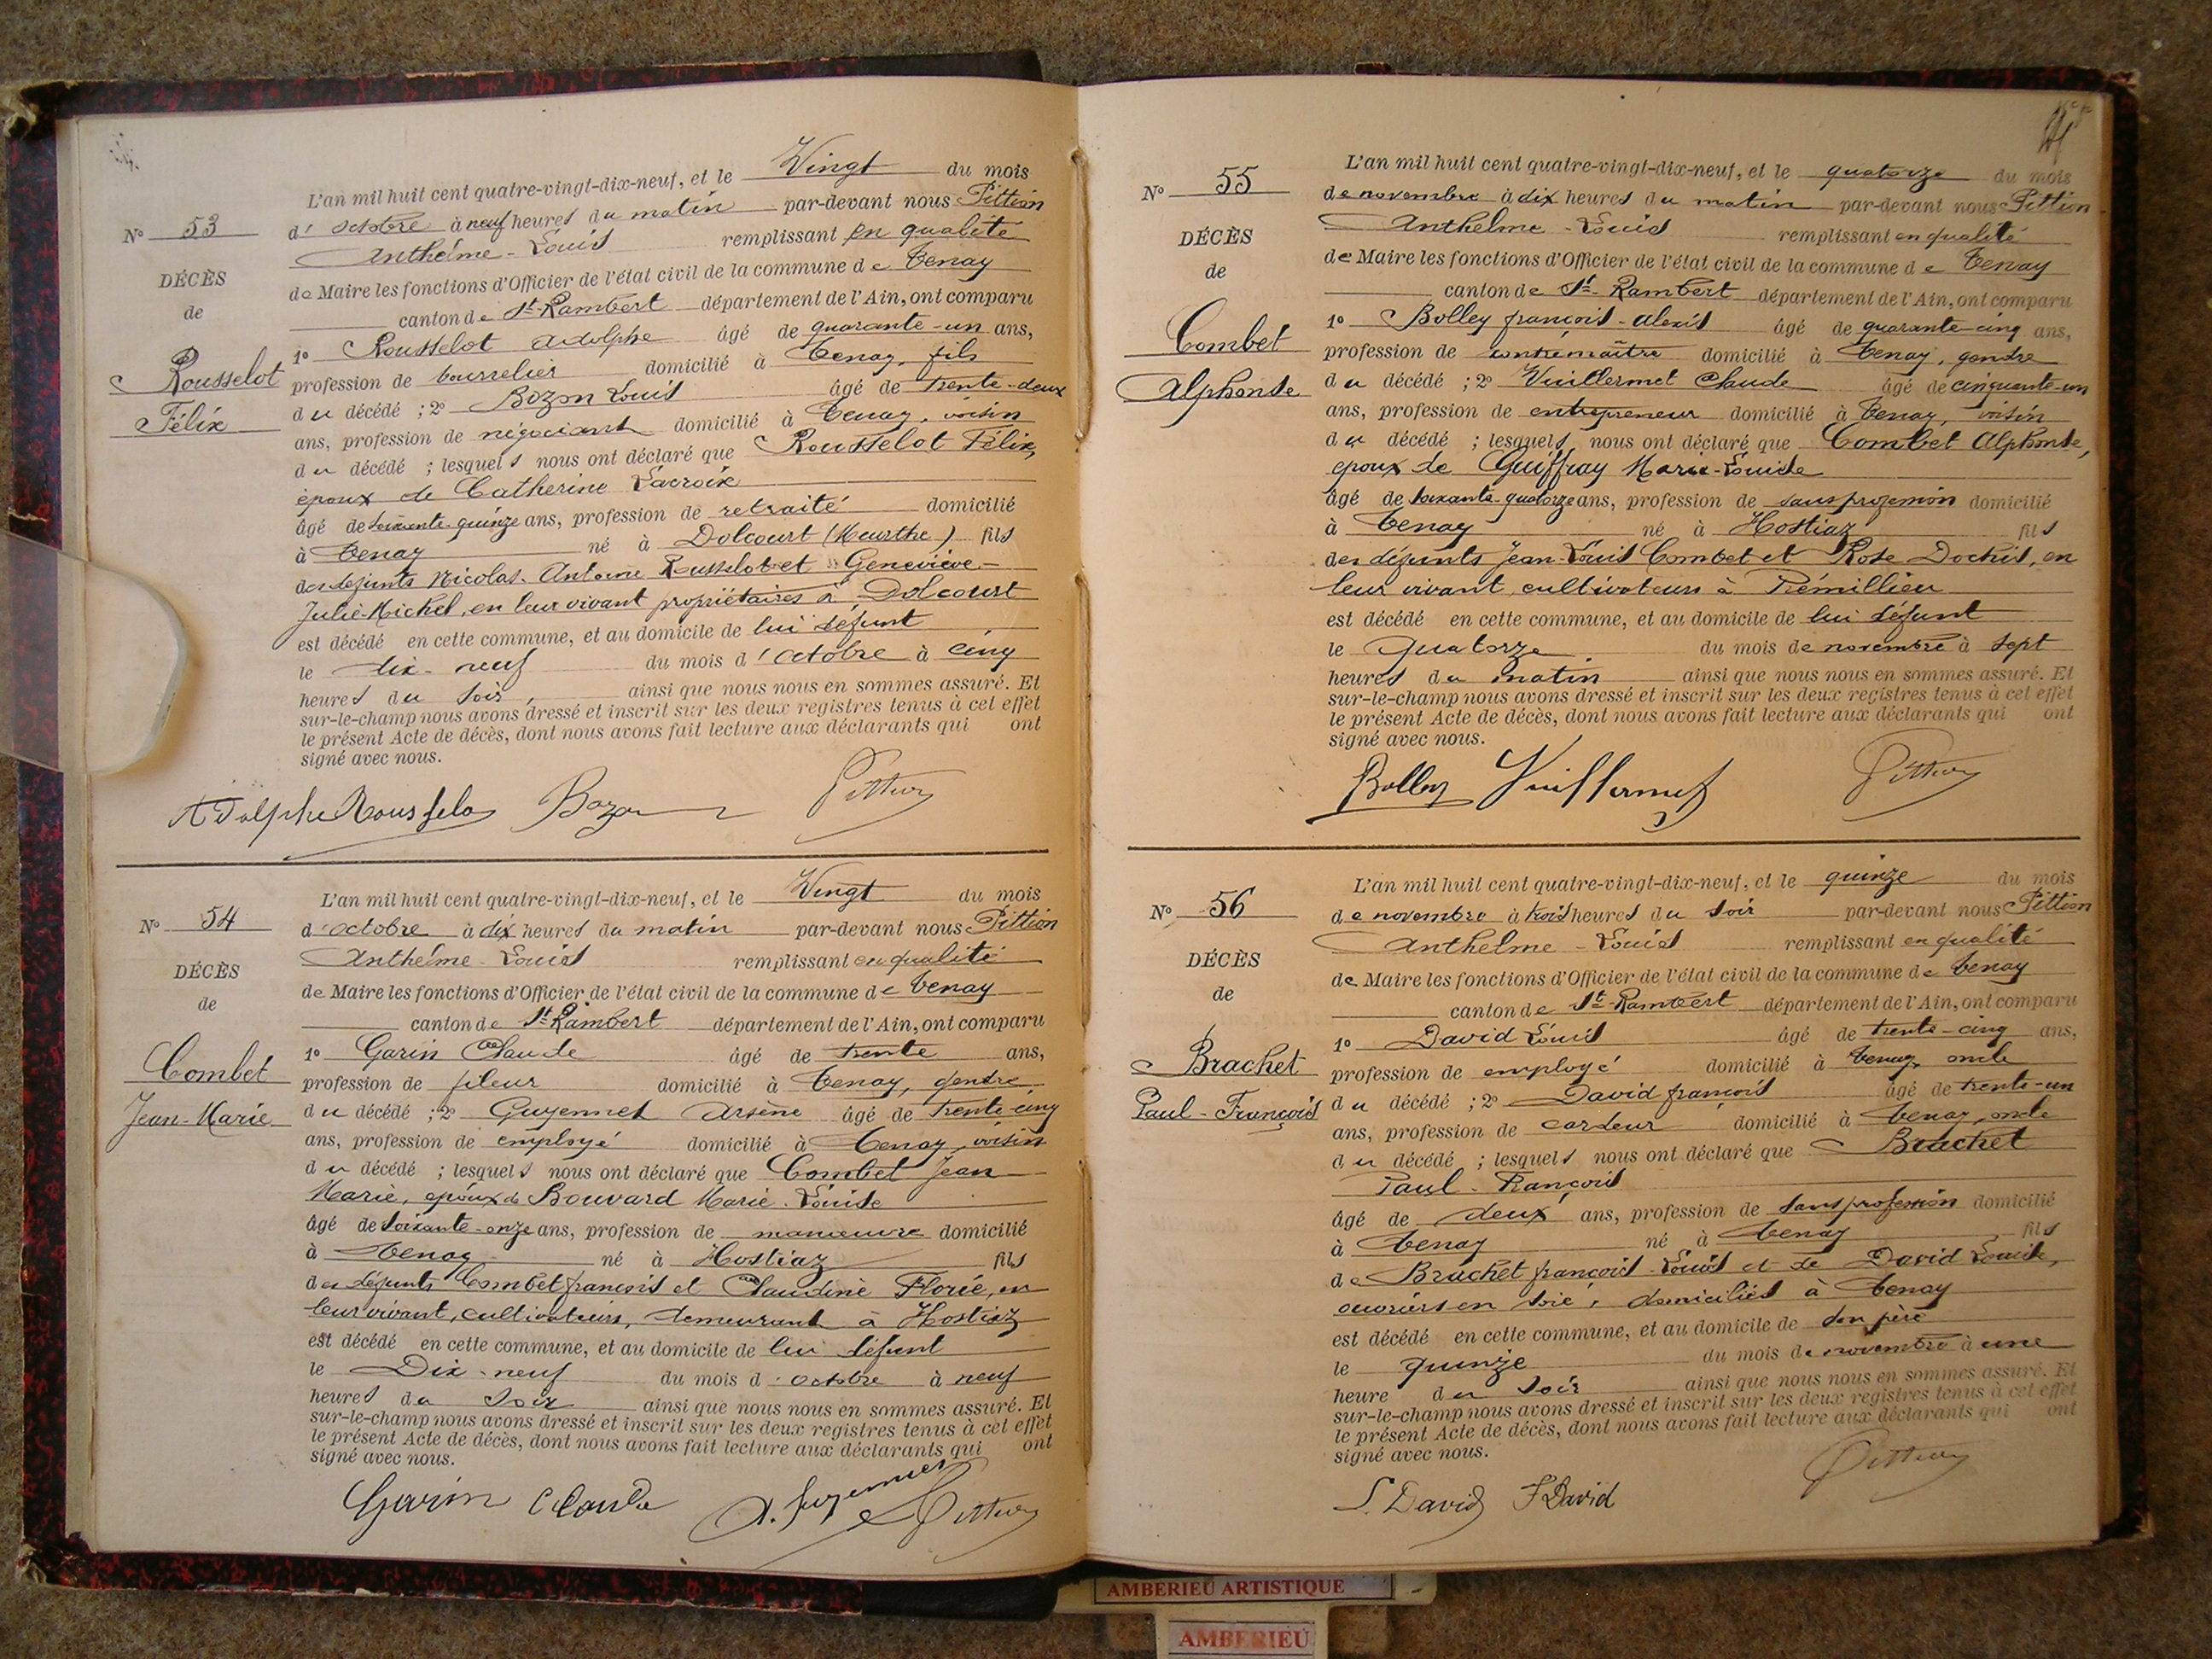 L'an mil huit cent quatre-vingt-dix-neuf, et le Vingt du mois
d'octobre à neuf heures du matin par-devant nous Pittion
Anthelme-Louis remplissant en qualité
de Maire les fonctions d'Officier de l'état civil de la commune de Tenay
canton de St-Rambert département de l'Ain, ont comparu
1º Rousselot Adolphe âgé de quarante-un ans,
profession de bourrelier domicilié à Tenay, fils
du décédé ; 2º Bozon Louis âgé de trente-deux
ans, profession de négociant domicilié à Tenay, voisin
du décédé ; lesquels nous ont déclaré que Rousselot Félix,
époux de Catherine Lacroix
âgé de soixante-quinze ans, profession de retraité domicilié
à Tenay né à Dolcourt (Meurthe) fils
des défunts Nicolas-Antoine Rousselot et Geneviève-
Julie-Michel, en leur vivant propriétaires à Dolcourt
est décédé en cette commune, et au domicile de lui défunt
le dix-neuf du mois d'octobre à cinq
heures du soir, ainsi que nous nous en sommes assuré. Et
sur-le-champ nous avons dressé et inscrit sur les deux registres tenus à cet effet
le présent Acte de décès, dont nous avons fait lecture aux déclarants qui ont
signé avec nous.
Nº 53
DÉCÈS
de
Rousselot
Félix
Adolphe Rousselot Bozon Pittion
L'an mil huit cent quatre-vingt-dix-neuf, et le Vingt du mois
d'octobre à dix heures du matin par-devant nous Pittion
Anthelme-Louis remplissant en qualité
de Maire les fonctions d'Officier de l'état civil de la commune de Tenay
canton de St-Rambert département de l'Ain, ont comparu
1º Garin Claude âgé de trente ans,
profession de fileur domicilié à Tenay, gendre
du décédé ; 2º Guyennet Arsène âgé de trente-cinq
ans, profession de employé domicilié à Tenay, voisin
du décédé ; lesquels nous ont déclaré que Combet Jean
Marie, époux de Bouvard Marie-Louise
âgé de soixante-onze ans, profession de manoeuvre domicilié
à Tenay né à Hostiaz fils
des défunts Combet françois et Claudine Florie, en
leur vivant, cultivateurs, demeurant à Hostiaz
est décédé en cette commune, et au domicile de lui défunt
le Dix-neuf du mois d'octobre à neuf
heures du soir ainsi que nous nous en sommes assuré. Et
sur-le-champ nous avons dressé et inscrit sur les deux registres tenus à cet effet
le présent Acte de décès, dont nous avons fait lecture aux déclarants qui ont
signé avec nous.
Nº 54
DÉCÈS
de
Combet
Jean-Marie
Garin Claude A. Guyennet Pittion
L'an mil huit cent quatre-vingt-dix-neuf, et le quatorze du mois
de novembre à dix heures du matin par-devant nous Pittion
Anthelme-Louis remplissant en qualité
de Maire les fonctions d'Officier de l'état civil de la commune de Tenay
canton de St-Rambert département de l'Ain, ont comparu
1º Bolley françois-alexis âgé de quarante-cinq ans,
profession de contremaître domicilié à Tenay, gendre
du décédé ; 2º Vuillermet Claude âgé de cinquante-un
ans, profession de entrepreneur domicilié à Tenay, voisin
du décédé ; lesquels nous ont déclaré que Combet Alphonse,
époux de Guiffray Marie-Louise
âgé de soixante-quatorze ans, profession de sans profession domicilié
à Tenay né à Hostiaz fils
des défunts Jean-Louis Combet et Rose Dochis, en
leur vivant cultivateurs à Prémillieu
est décédé en cette commune, et au domicile de lui défunt
le Quatorze du mois de novembre à sept
heures du matin ainsi que nous nous en sommes assuré. Et
sur-le-champ nous avons dressé et inscrit sur les deux registres tenus à cet effet
le présent Acte de décès, dont nous avons fait lecture aux déclarants qui ont
signé avec nous.
Nº 55
DÉCÈS
de
Combet
Alphonse
Bolley Vuillermet Pittion
L'an mil huit cent quatre-vingt-dix-neuf, et le quinze du mois
de novembre à trois heures du soir par-devant nous Pittion
Anthelme-Louis remplissant en qualité
de Maire les fonctions d'Officier de l'état civil de la commune de Tenay
canton de St-Rambert département de l'Ain, ont comparu
1º David Louis âgé de trente-cinq ans,
profession de employé domicilié à Tenay, oncle
du décédé ; 2º David françois âgé de trente-un
ans, profession de cardeur domicilié à Tenay, oncle
du décédé ; lesquels nous ont déclaré que Brachet
Paul-François
âgé de deux ans, profession de sans profession domicilié
à Tenay né à Tenay fils
de Brachet françois-Louis et de David Louise,
ouvriers en soie, domiciliés à Tenay
est décédé en cette commune, et au domicile de son père
le quinze du mois de novembre à une
heure du soir ainsi que nous nous en sommes assuré. Et
sur-le-champ nous avons dressé et inscrit sur les deux registres tenus à cet effet
le présent Acte de décès, dont nous avons fait lecture aux déclarants qui ont
signé avec nous.
Nº 56
DÉCÈS
de
Brachet
Paul-François
L. David F David Pittion
AMBERIEU ARTISTIQUE
AMBERIEU